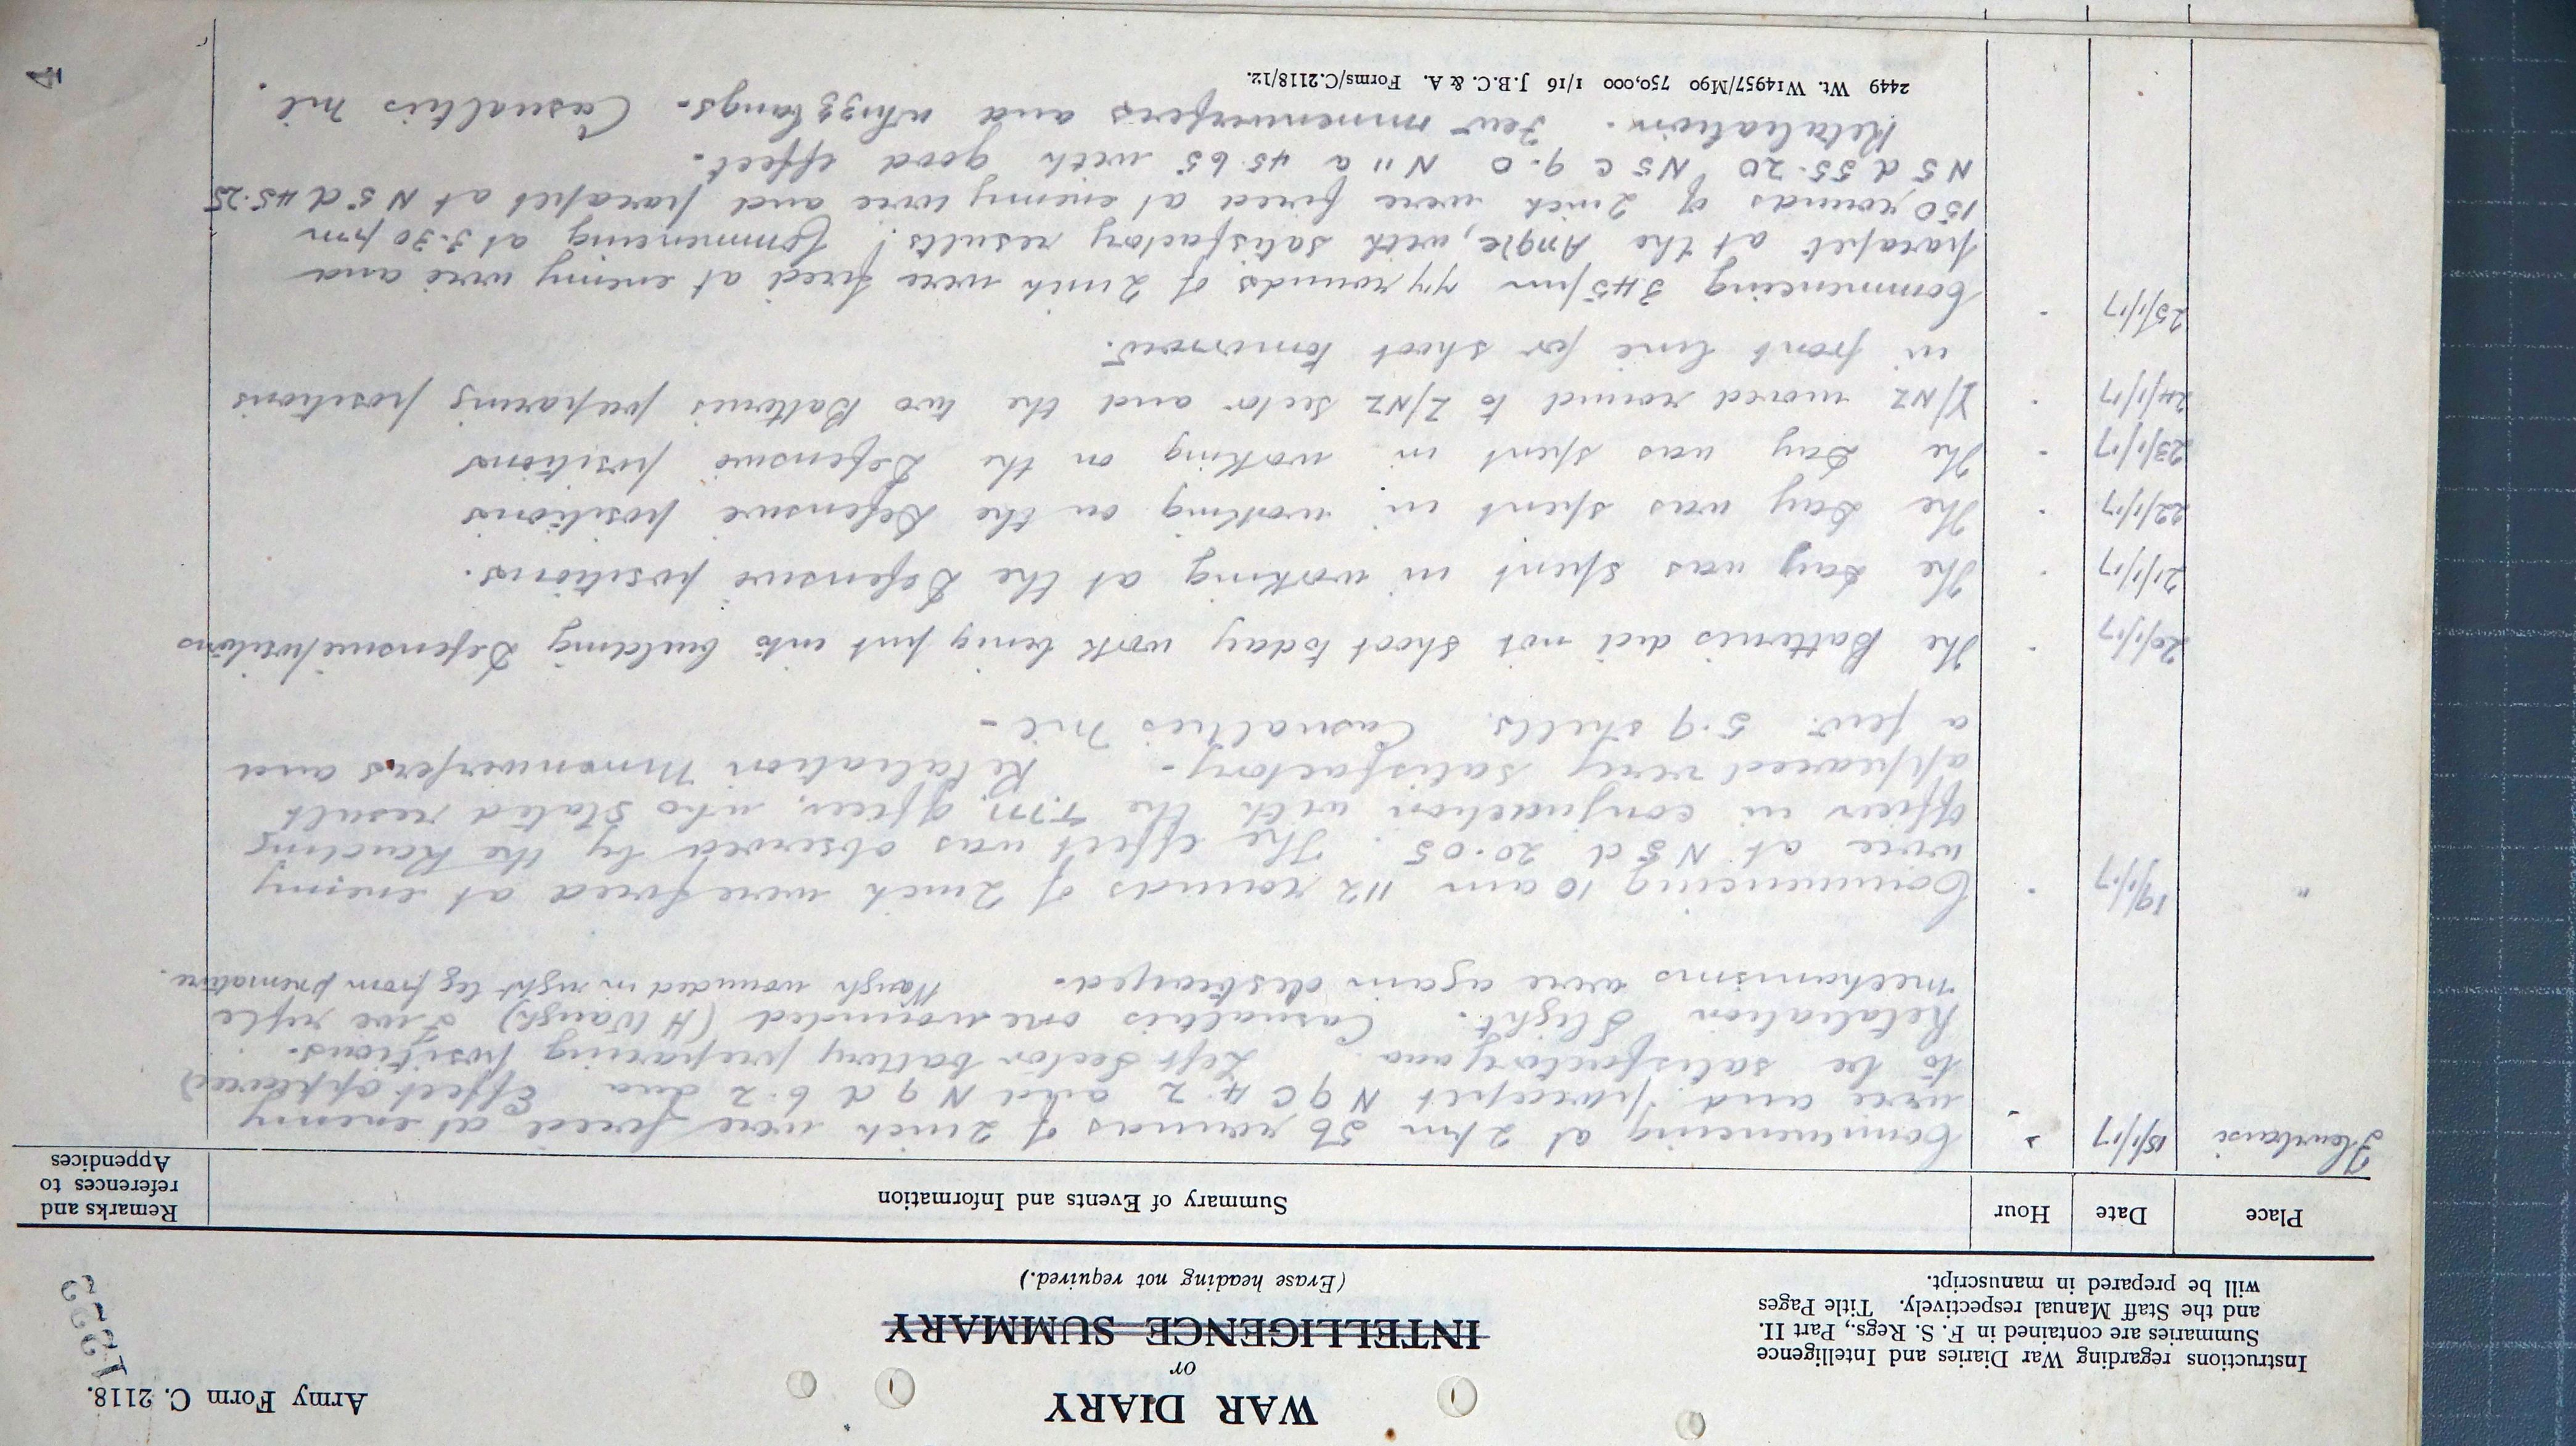 Army Form C. 2118.
WAR DIARY
or
INTELLIGENCE SUMMARY
(Erase heading not required.)
Instructions regarding War Diaries and Intelligence
Summaries are contained in F. S. Regs., Part II.
and the Staff Manual respectively. Title Pages
will be prepared in manuscript.
Place Date Hour Summary of Events and Information Remarks and
references to
Appendices
Fleurbaix 18/1/17 Commencing at 2 pm 56 rounds of 2 inch were fired at enemy
wire and parapet N 9 C 4.2 and N 9 d 6.2 and Effect appeared
to be satisfactory Left Sector battery preparing positions.
Retaliation Slight. Casualties one wounded (H Waugh) Two rifle
mechanisms were again destroyed. Waugh wounded in right leg from premature.
" 19/1/17 Commencing 10 am 112 rounds of 2 inch were fired at enemy
wire at N 5 d 20.05. The effect was observed by the
officer in conjunction with the T.M. officer, who stated result
appeared very satisfactory - Retaliation Minenwerfers and
a few 5.9 shells. Casualties Nil -
20/1/17 The Batteries did not shoot today work being put into building Defensive positions
21/1/17 The Day was spent in working at the Defensive positions.
22/1/17 The Day was spent in working on the Defensive positions
23/1/17 The Day was spent in working on the Defensive positions
24/1/17 Y/NZ moved round to Z/NZ Sector and the two Batteries preparing positions
in front line for shoot tomorrow.
25/1/17 Commencing 3.45 pm 74 rounds of 2 inch were fired at enemy wire and
parapet at the Angle, with satisfactory results! Commencing at 3.30 pm
150 rounds of 2 inch were fired at enemy wire and parapet at N 5 d 45.25
N 5 d 55.20 N 5 c 9.0 N 11 a 45.65 with good effect -
Retaliation. Few minenwerfers and whizzbangs - Casualties nil.
2449 Wt. W14957/M90 750,000 1/16 J.B.C. & A. Forms/C.2118/12.
4